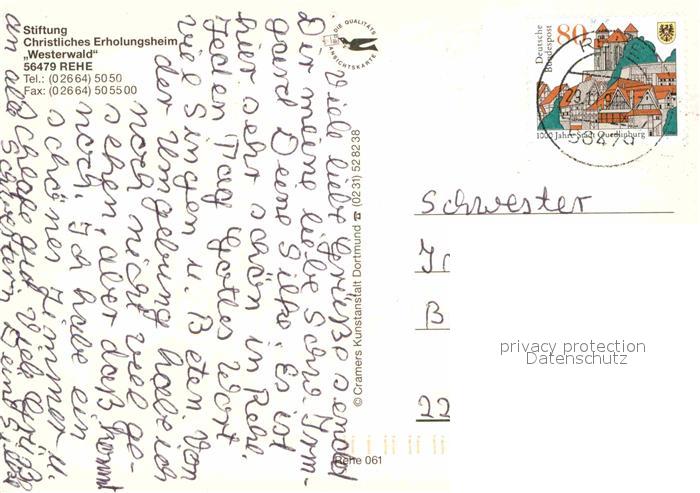 Stiftung
Christliches Erholungsheim
„Westerwald"
56479 REHE
Tel.: (02664) 5050
Fax: (02664) 505500
DIE QUALITÄTS
ANSICHTSKARTE
Viele liebe Grüße sendet
Dir meine liebe Schw. Irm-
gard Deine Silke. Es ist
hier sehr schön in Rehe.
Jeden Tag Gottes Wort
viel Singen u. Beten. Von
der Umgebung habe ich
noch nicht viel ge-
sehen, aber daß kommt
noch. Ich habe ein
schönes Zimmer u.
schlafe gut. Viele Grüße
an alle Schwestern Deine Silke
© Cramers Kunstanstalt Dortmund ☎ (0231) 528238
Rehe 061
Deutsche
Bundespost
80
1000 Jahre Stadt Quedlinburg
56479
Schwester
Ir
B
22
privacy protection
Datenschutz